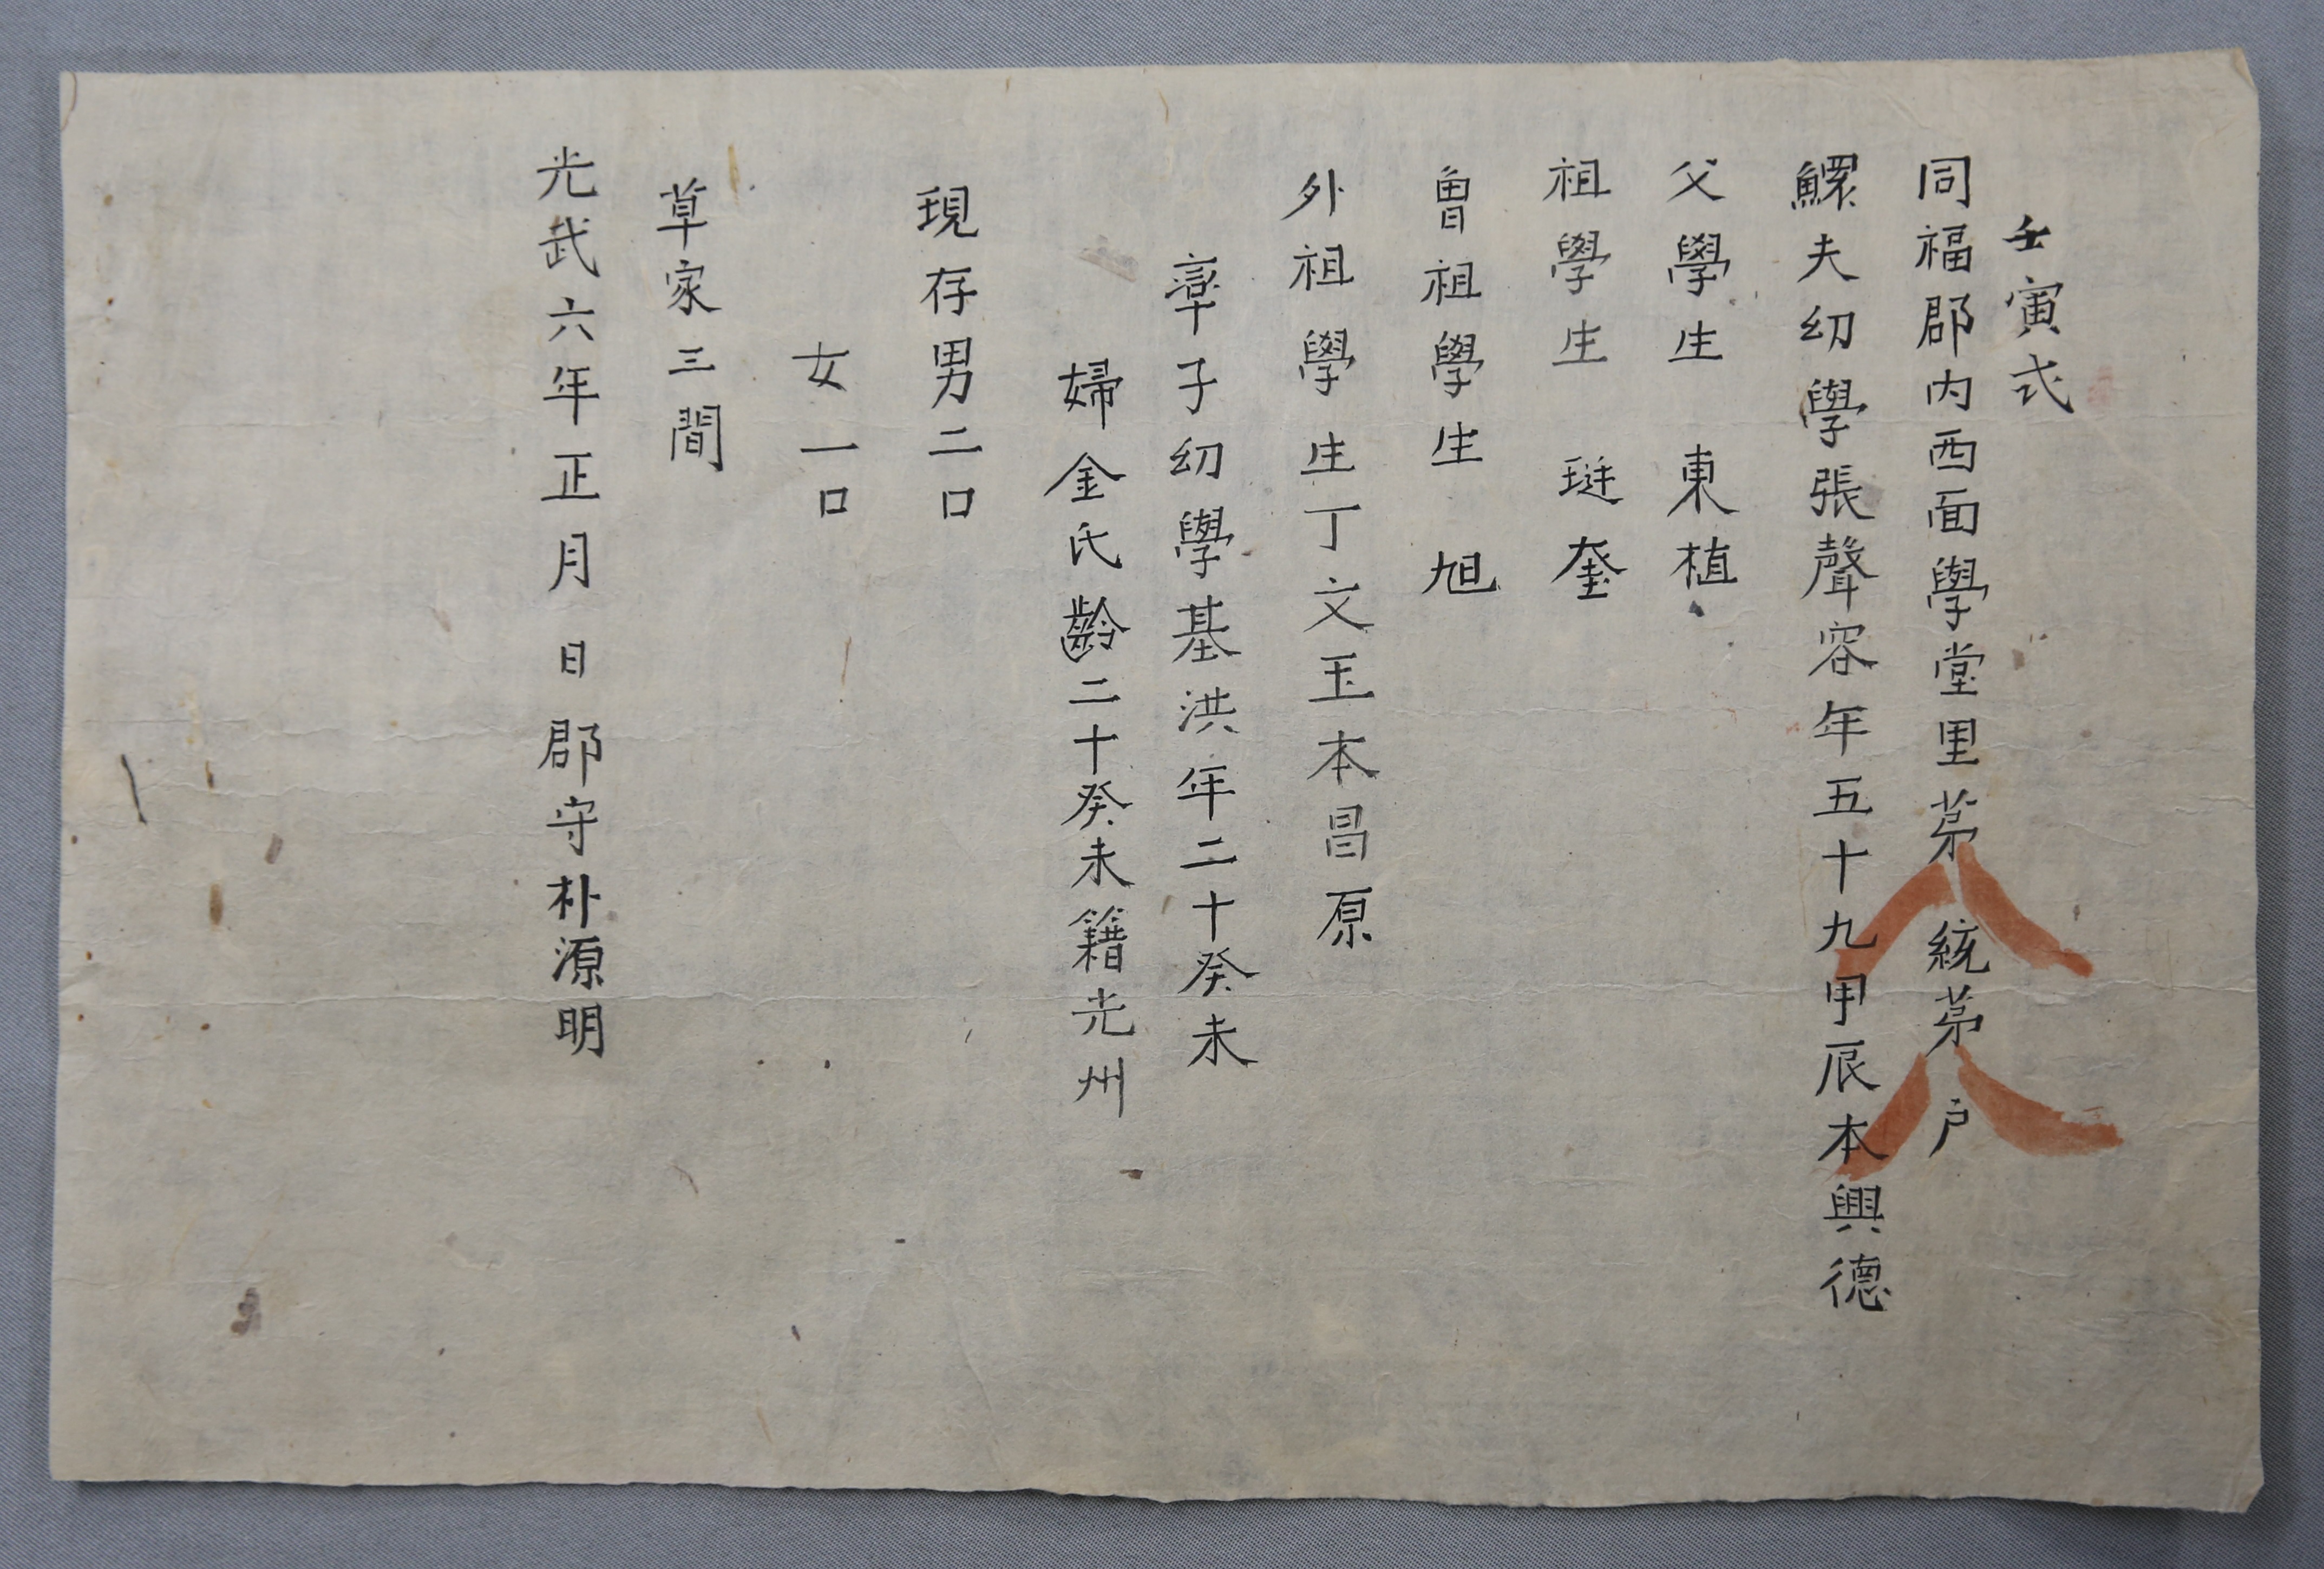 壬寅式
同福郡内西面學堂里苐 統苐 户
鰥夫幼學張聲容年五十九甲辰本興德
父學生 東植
祖學生 珽奎
曾祖學生 旭
外祖學生丁文玉本昌原
率子幼學基洪年二十癸未
婦金氏齡二十癸未籍光州
現存男二口
女一口
草家三間
光武六年正月 日郡守朴源明